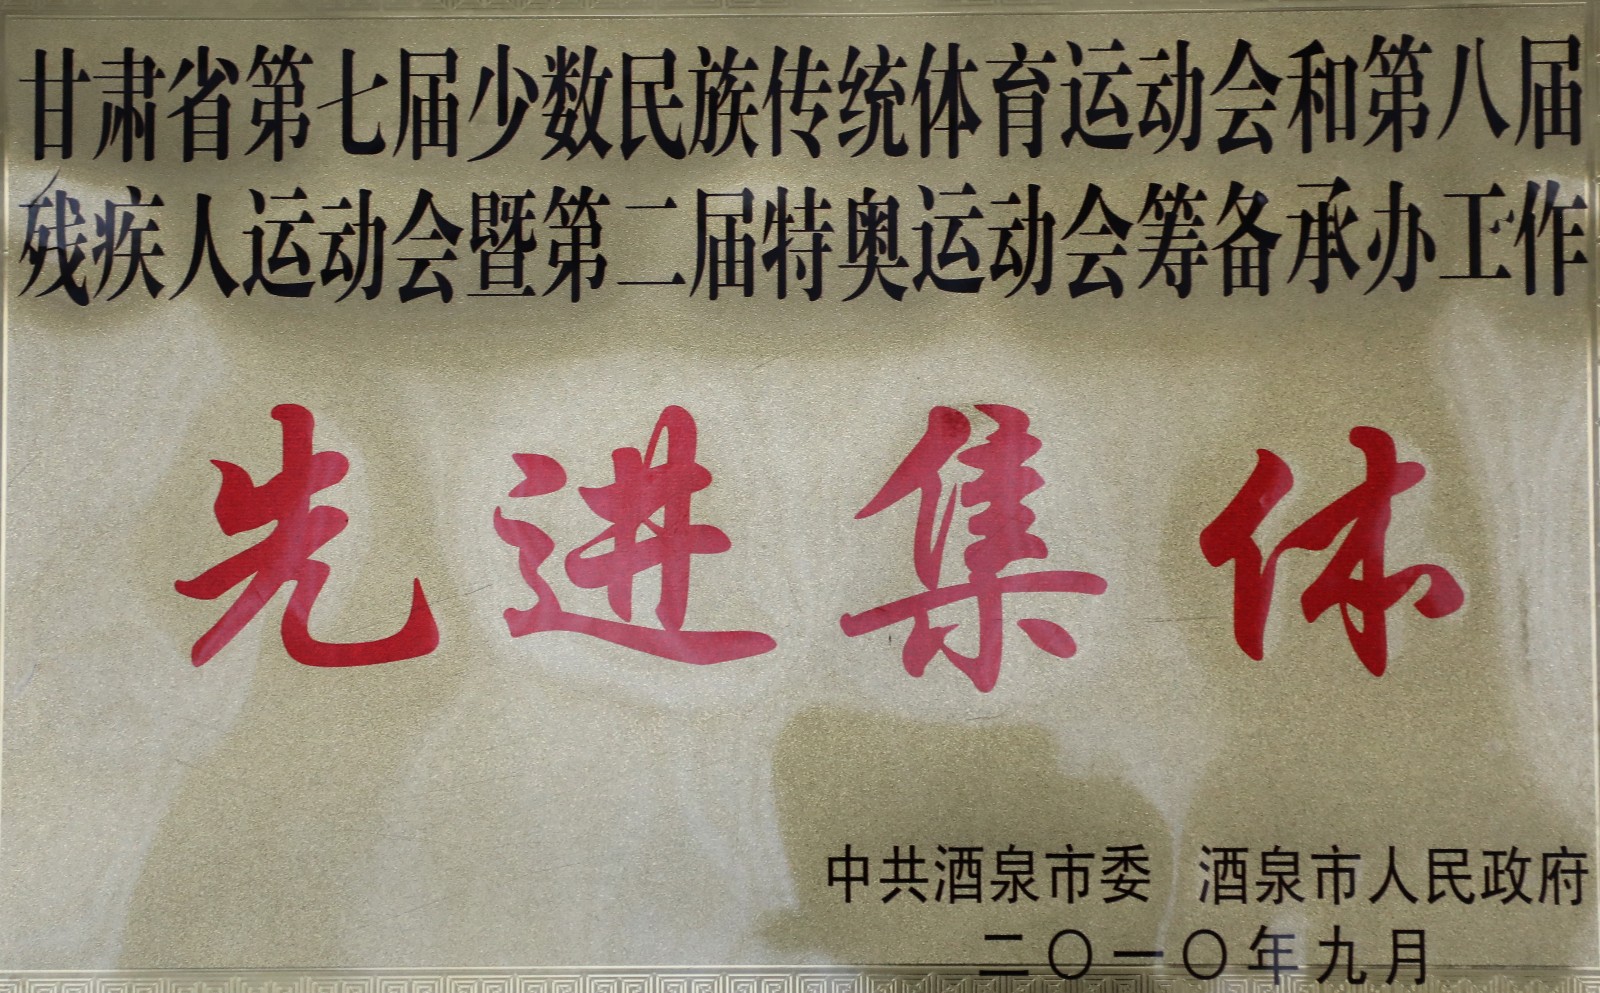 甘肃省第七届少数民族传统体育运动会和第八届
残疾人运动会暨第二届特奥运动会筹备承办工作
先进集体
中共酒泉市委 酒泉市人民政府
二〇一〇年九月